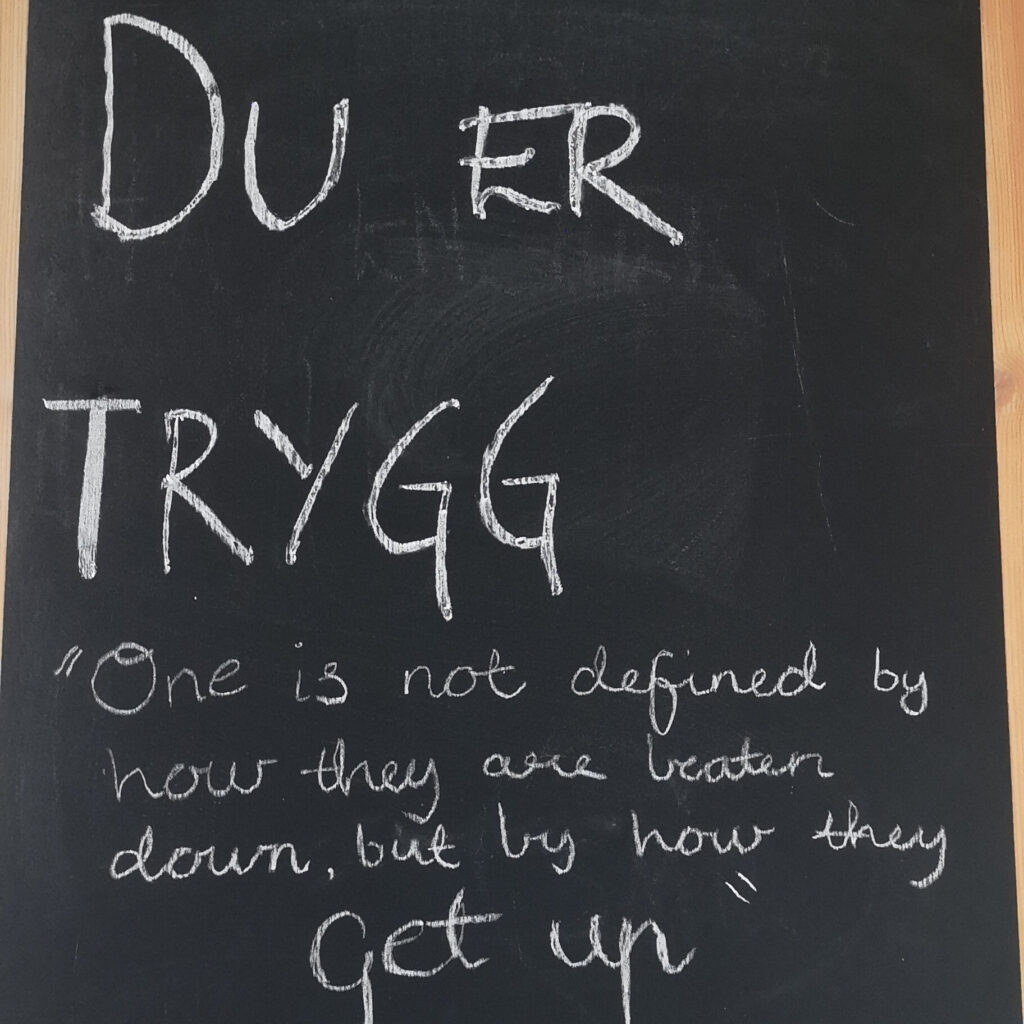 DU ER
TRYGG
"One is not defined by
how they are beaten
down, but by how they
get up"